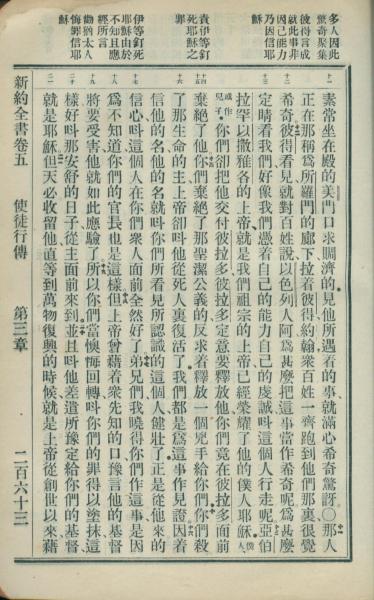 多人因此
驚奇聚集
彼得言成
就此事非
因己能力
乃因信耶
穌
責伊等釘
死耶穌之
罪
伊等釘死
耶穌由於
不知且應
經所言
勸猶太人
悔罪信耶
穌
十一
素常坐在殿的美門口求賙濟的見他所遇着的事就滿心希奇驚訝○那人
正在那稱爲所羅門的廊下拉着彼得約翰衆百姓一齊跑到他們那裏很覺
十二
希奇彼得看見就對百姓說以色列人阿爲甚麼把這事當作希奇呢爲甚麼
十三
定睛看我們好像我們憑着自己的能力自己的虔誠呌這個人行走呢亞伯
拉罕以撒雅各的上帝就是我們祖宗的上帝已經榮耀了他的僕人耶穌僕人
或作兒子你們卻把他交付彼拉多彼拉多定意要釋放他你們竟在彼拉多面前
十四
十五
棄絕了他你們棄絕了那聖潔公義的反求着釋放一個兇手給你們你們殺
十六
了那生命的主上帝卻呌他從死人裏復活了我們都是爲這事作見證因着
信他的名他的名就呌你們所看見所認識的這個人健壯了正是從他來的
十七
信心呌這個人在你們衆人面前全然好了弟兄們我曉得你們作這事是因
十八
爲不知道你們的官長也是這樣但上帝曾藉着衆先知的口豫言他的基督
十九
將要受害他就如此應驗了所以你們當懊悔回轉呌你們的罪得以塗抹這
二十
樣好呌那安舒的日子從主面前來到並且呌他差遣所豫定給你們的基督
二一
就是耶穌但天必收留他直等到萬物復興的時候就是上帝從創世以來藉
新約全書卷五 使徒行傳 第三章 二百六十三